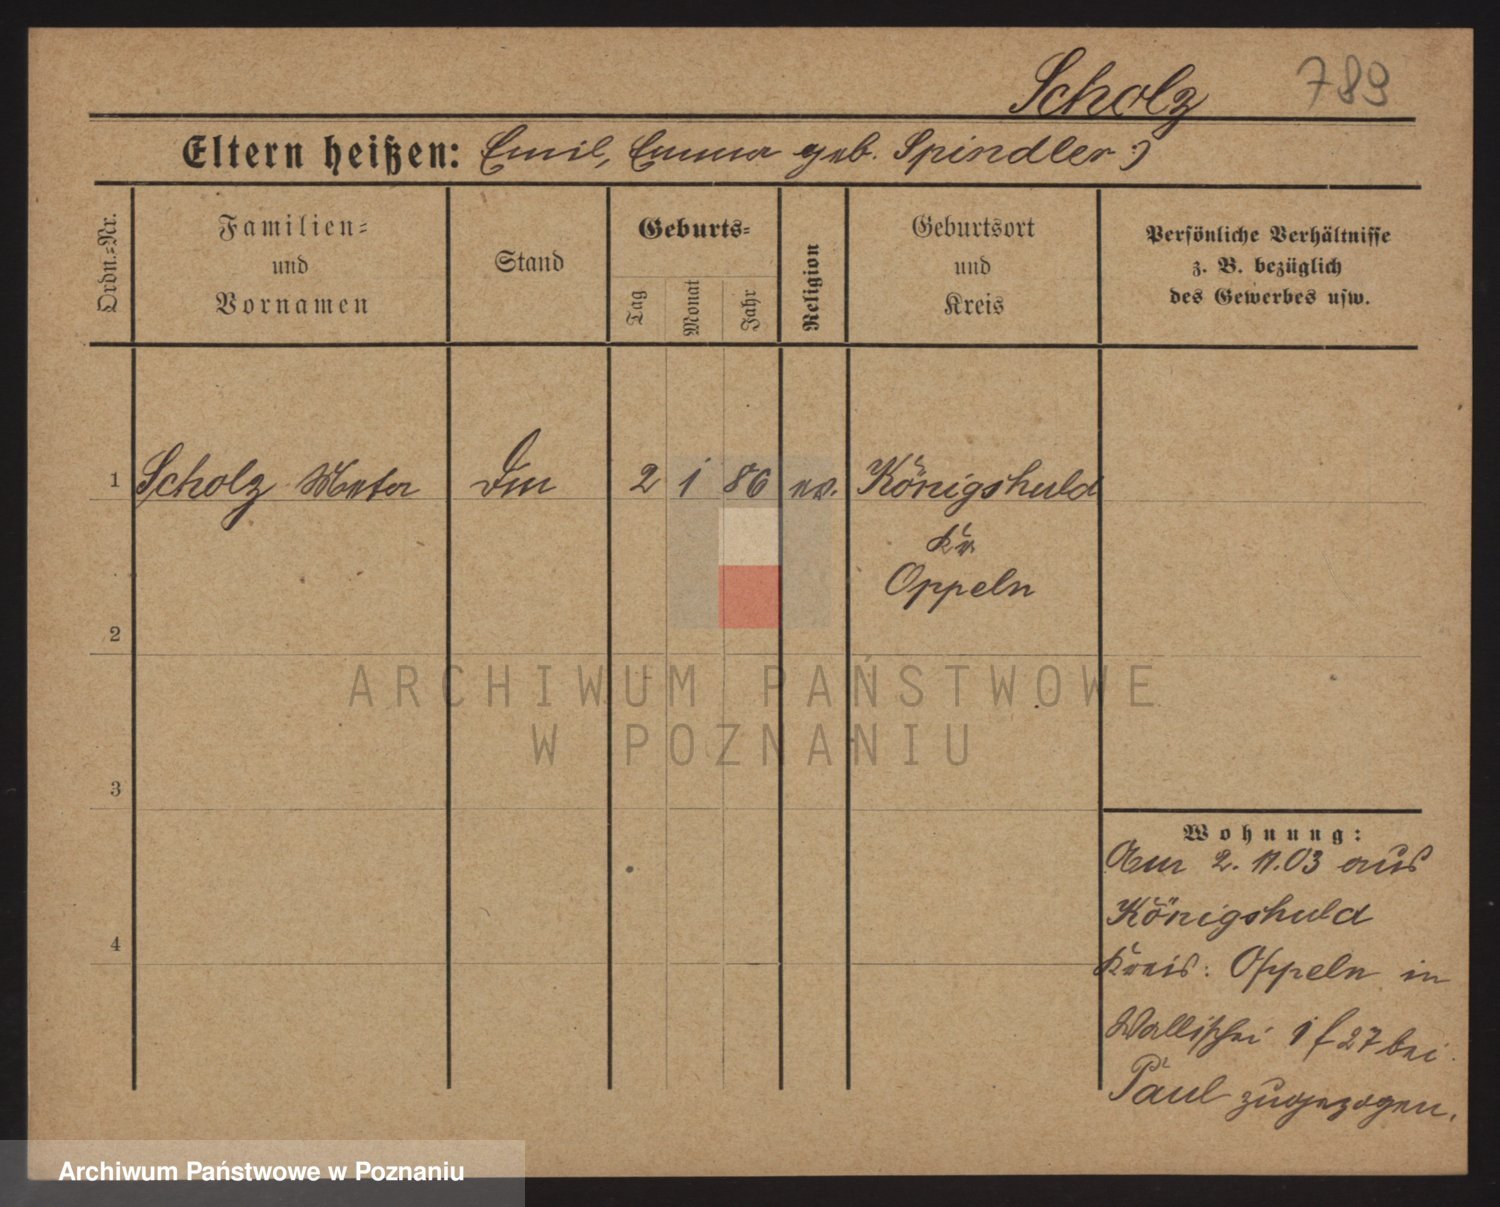 Scholz 789
Eltern heißen: Emil, Emma geb. Spindler)
Ordn.=Nr.
Familien=
und
Vornamen
Stand
Geburts=
Tag
Monat
Jahr
Religion
Geburtsort
und
Kreis
Persönliche Verhältnisse
z. B. bezüglich
des Gewerbes usw.
1 Scholz Meta 2 1 86 ev. Königshuld
Kr
Oppeln
2
3
4
Wohnung:
Am 2. 11. 03 aus
Königshuld
Kreis: Oppeln in
Wallischei 27 bei
Paul zugezogen.
ARCHIWUM PAŃSTWOWE
W POZNANIU
Archiwum Państwowe w Poznaniu